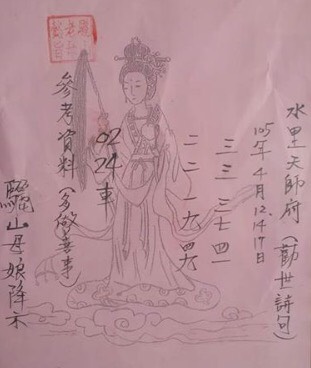 水里天師府(勸世詩句)
105年4月12.14.17日
三三 三七 四一
二二 一九 四六
02
24
車
參考資料(多做善事)
驪山母娘降示